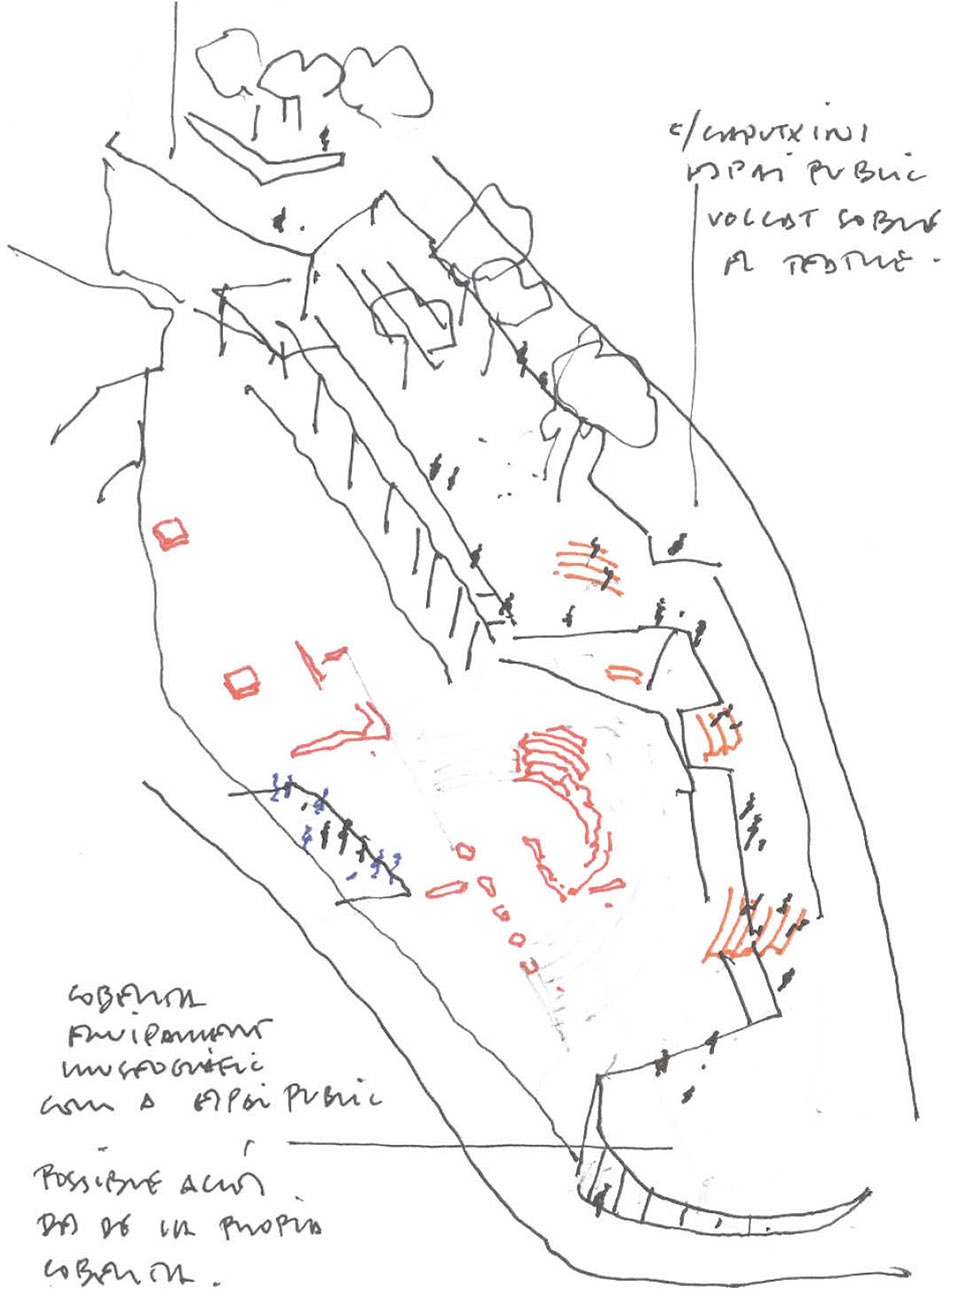 c/ CAPUTXINS
ESPAI PUBLIC
VOLCAT SOBRE
EL TEATRE.
COBERTA
EQUIPAMENT
MUSEOGRÀFIC
COM A ESPAI PUBLIC
POSSIBLE ACCÉS
DES DE LA PROPIA
COBERTA.